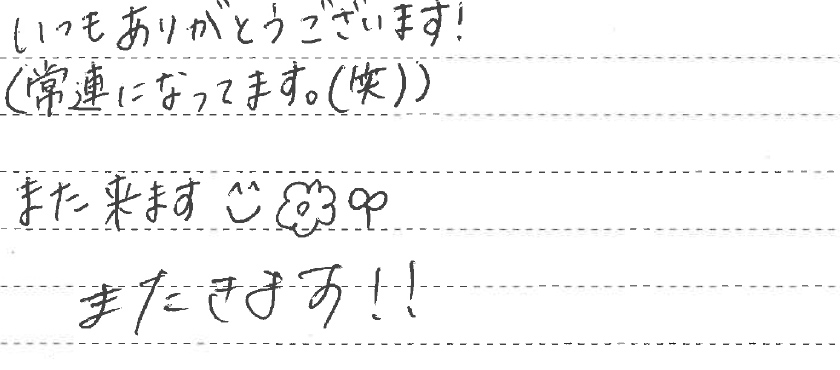 いつもありがとうございます!
(常連になってます。(笑))
また来ます
またきます!!